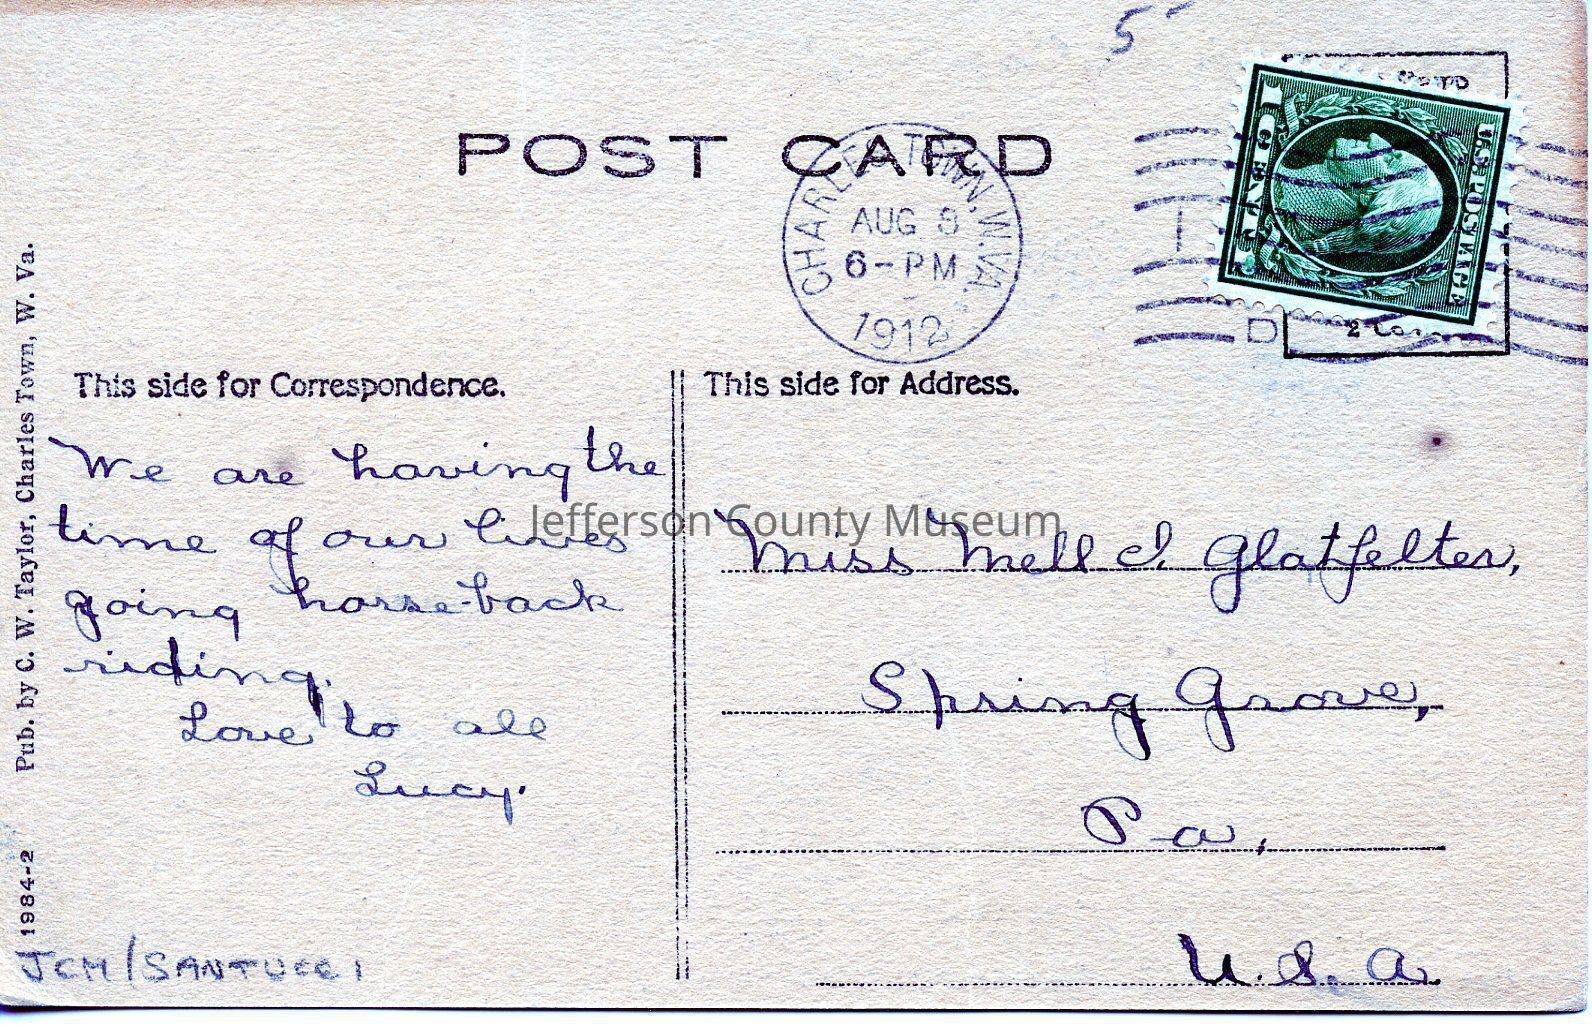 5
POST CARD
CHARLES TOWN, W. VA.
AUG 9
6-PM
1912
ONE CENT
U.S. POSTAGE
D
This side for Correspondence.
This side for Address.
We are having the
time of our lives
going horse-back
riding.
Love to all
Lucy.
Jefferson County Museum
Miss Mell I. Glatfelter,
Spring Grove,
Pa,
U.S.A.
Pub. by C. W. Taylor, Charles Town, W. Va.
1984-2
JCM/SANTUCCI